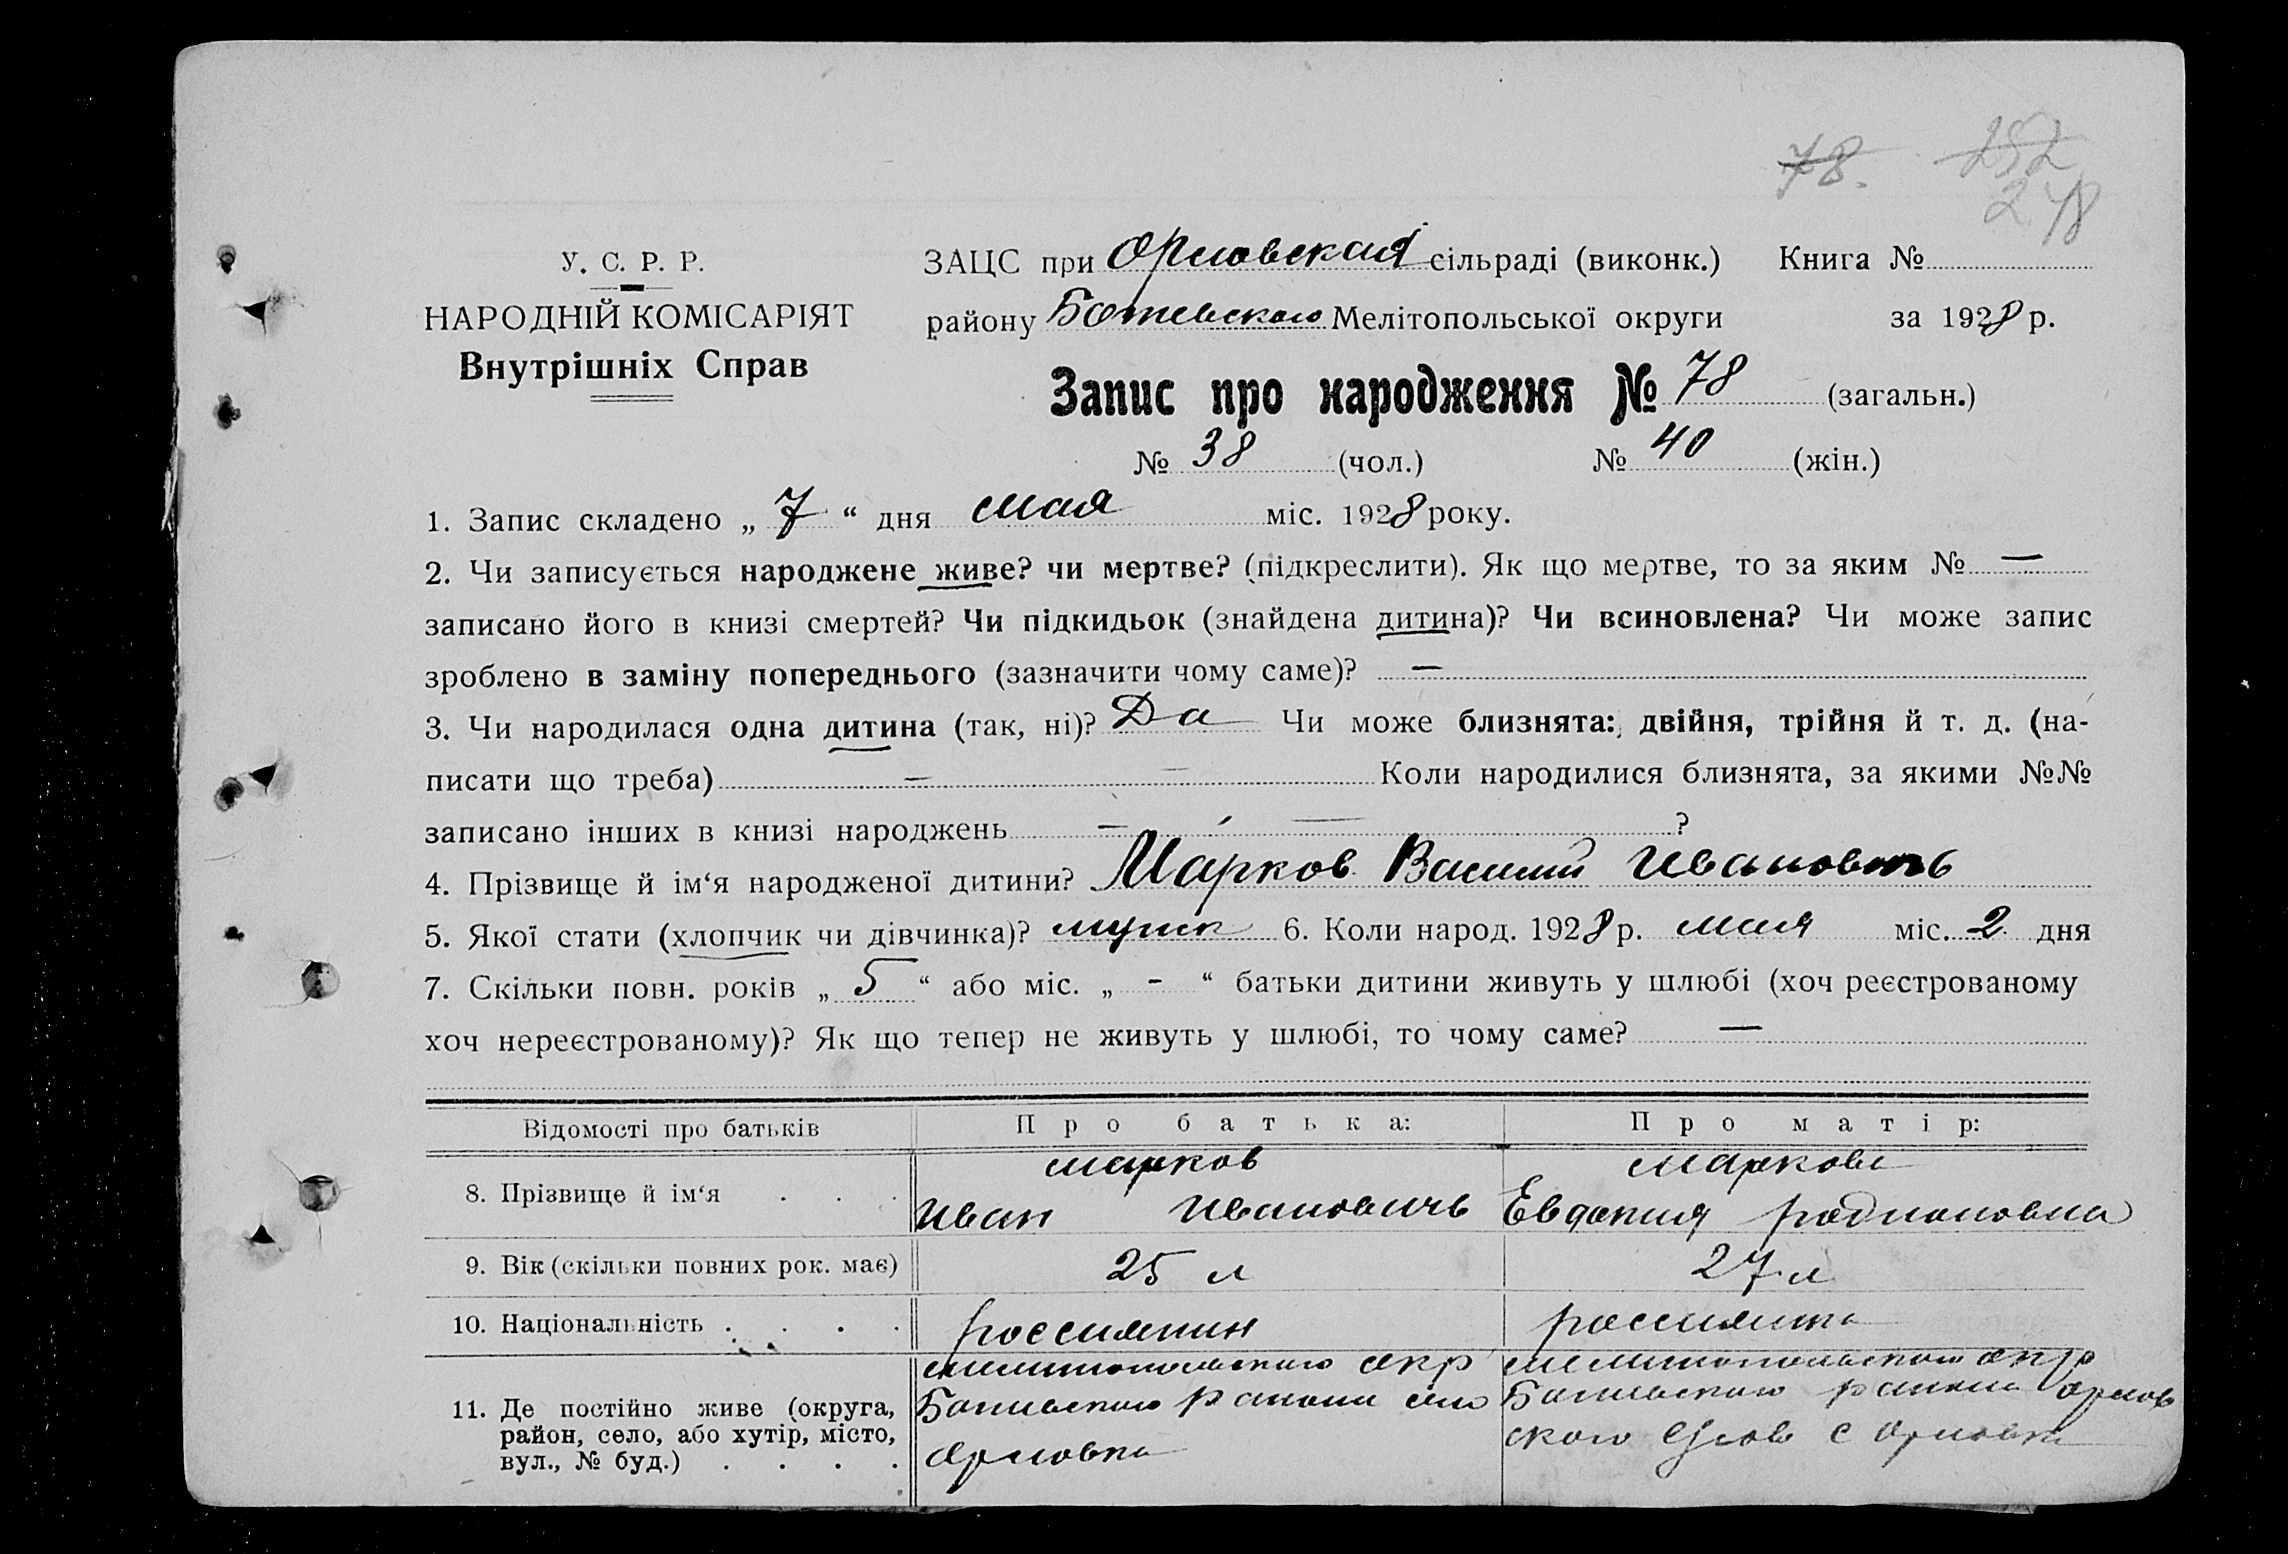 78. 252
248
У. С. Р. Р.
НАРОДНІЙ КОМІСАРІЯТ
Внутрішніх Справ
ЗАЦС при Орловской сільраді (виконк.) Книга №
району Ботевского Мелітопольської округи за 1928 р.
Запис про народження № 78 (загальн.)
№ 38 (чол.) № 40 (жін.)
1. Запис складено „ 7 “ дня мая міс. 1928 року.
2. Чи записується народжене живе? чи мертве? (підкреслити). Як що мертве, то за яким № —
записано його в книзі смертей? Чи підкидьок (знайдена дитина)? Чи всиновлена? Чи може запис
зроблено в заміну попереднього (зазначити чому саме)? —
3. Чи народилася одна дитина (так, ні)? Да Чи може близнята: двійня, трійня й т. д. (на-
писати що треба) — — Коли народилися близнята, за якими №№
записано інших в книзі народжень — — ?
4. Прізвище й ім‘я народженої дитини? Марков Василий Ивановичь
5. Якої стати (хлопчик чи дівчинка)? мужск 6. Коли народ. 1928 р. мая міс. 2 дня
7. Скільки повн. років „ 5 “ або міс. „ - “ батьки дитини живуть у шлюбі (хоч реєстрованому
хоч нереєстрованому)? Як що тепер не живуть у шлюбі, то чому саме? —
Відомості про батьків Про батька: Про матір:
8. Прізвище й ім‘я . . . Марков Иван Ивановичь Маркова Евдокия Родионовна
9. Вік (скільки повних рок. має) 25 л 27 л
10. Національність . . . . россиянин россиянка
11. Де постійно живе (округа, Мелитопольского окр Мелитопольского окр
район, село, або хутір, місто, Ботевского района село Ботевского района Орлов
вул., № буд.) . . . . Орловка ского с Орловка